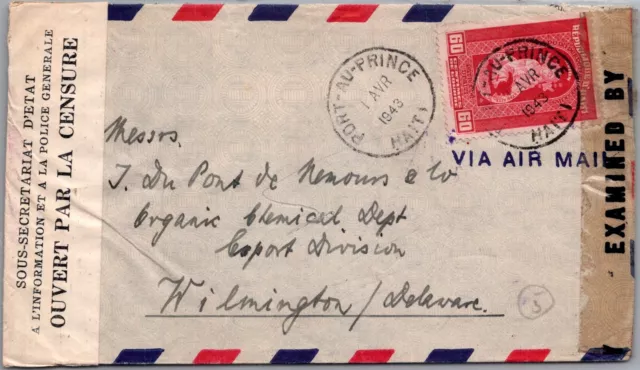 SOUS-SECRETARIAT D'ETAT
A L'INFORMATION ET A LA POLICE GENERALE
OUVERT PAR LA CENSURE
PORT-AU-PRINCE
1 AVR
1943
HAITI
60
60
T-AU-PRINCE
AVR
1943
HAITI
VIA AIR MAI
EXAMINED BY
Messrs.
I. Du Pont de Nemours & Co
Organic Chemical Dept
Export Division
Wilmington/Delaware.
5